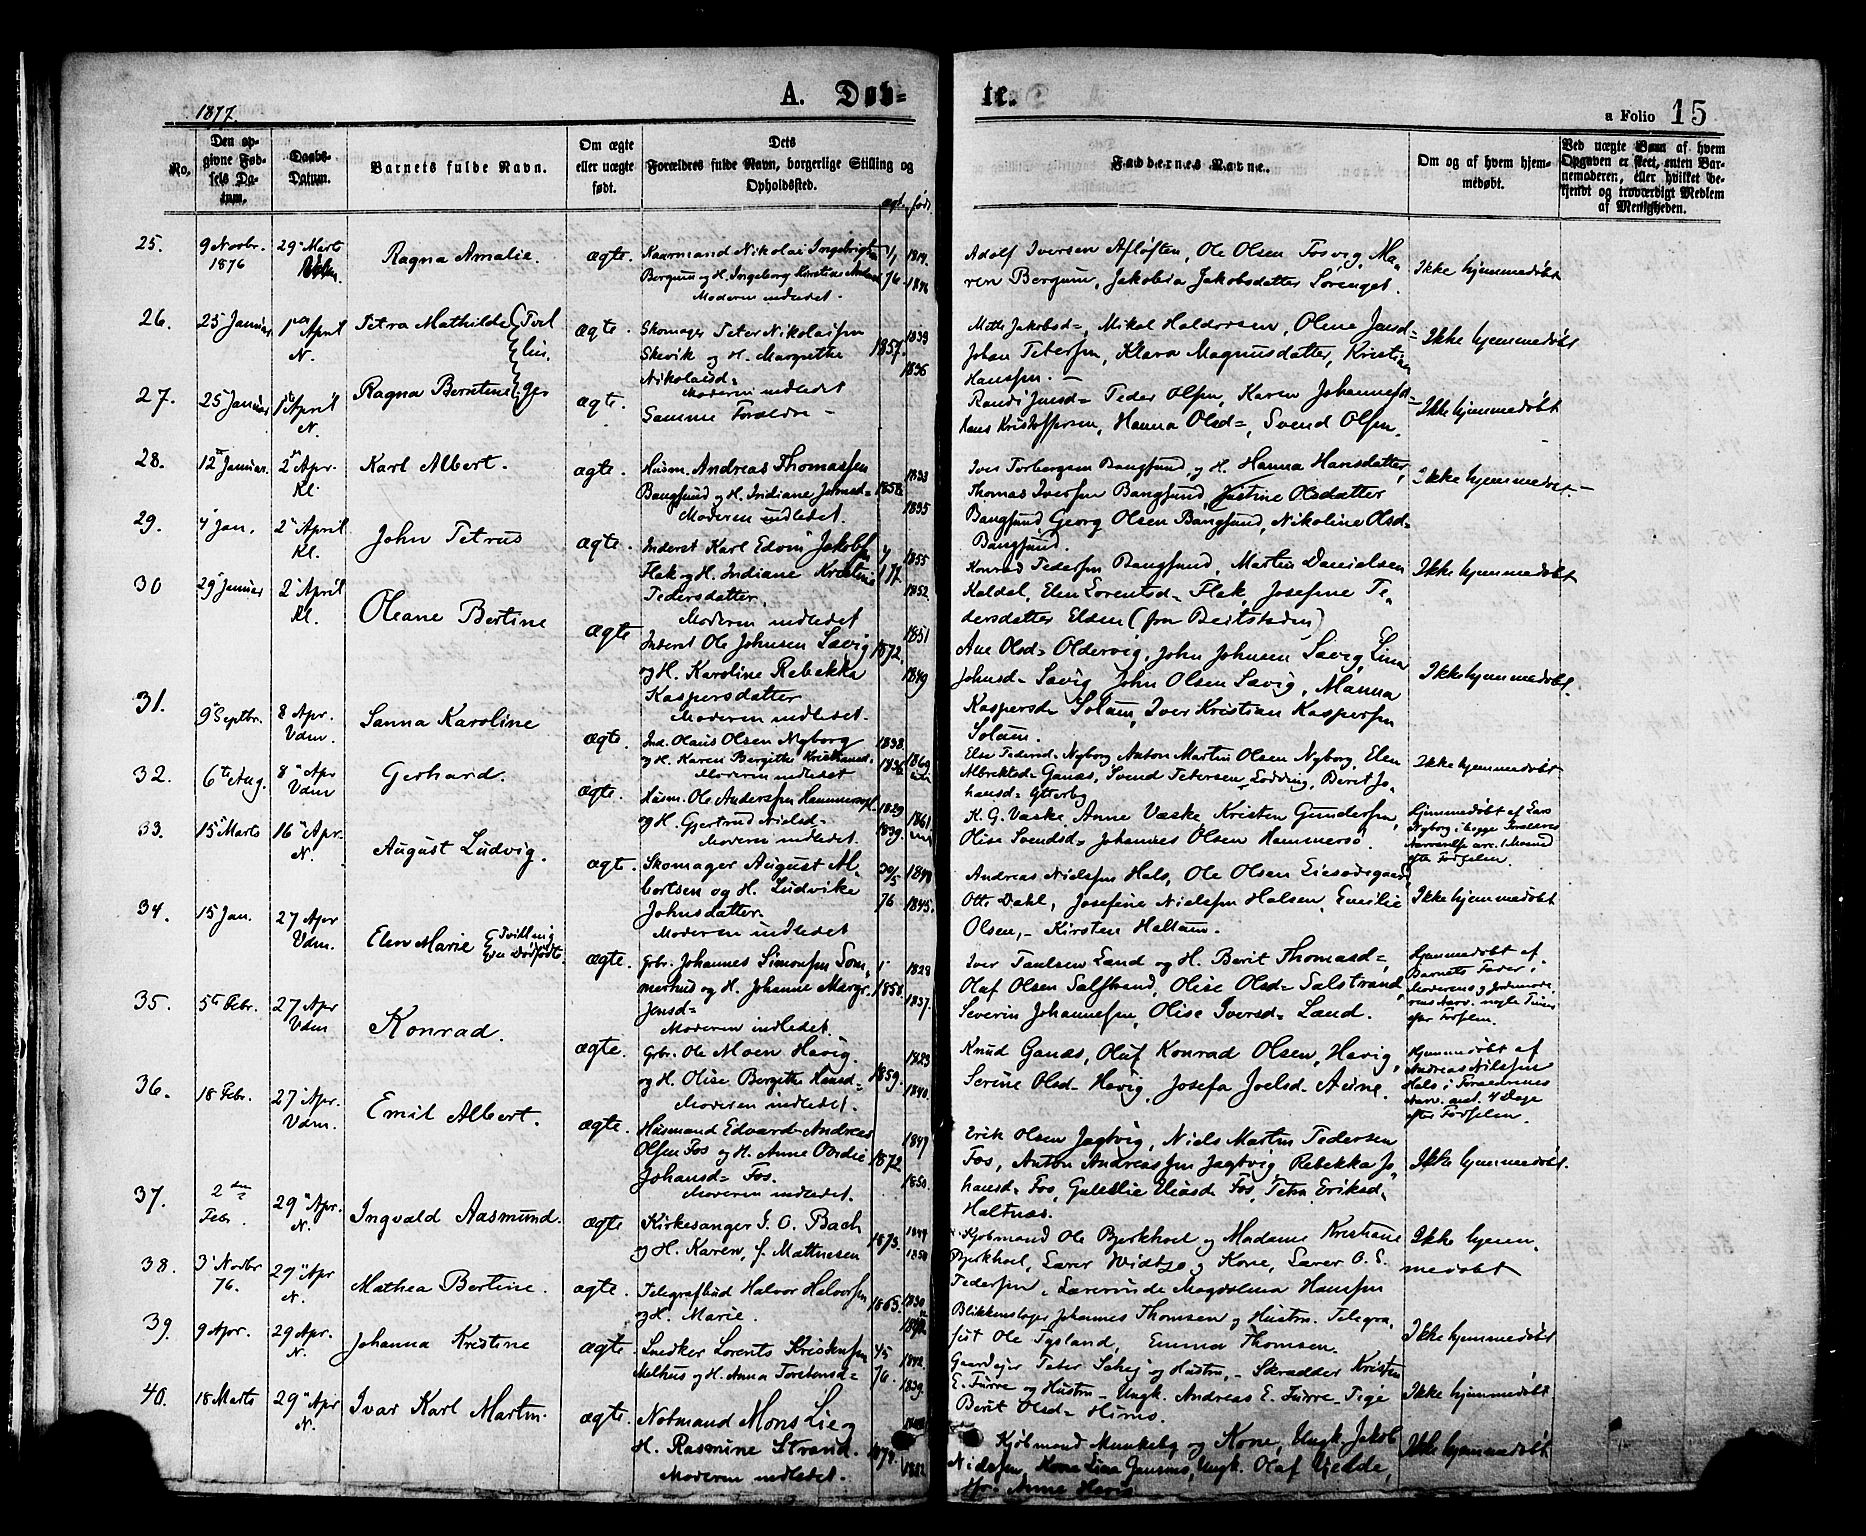 1877.
A. Døb-
te.
a Folio 15
No.
Den op-
givne Fød-
sels Da-
tum.
Daabs-
Datum.
Barnets fulde Navn.
Om ægte
eller uægte
født.
Dets
Forældres fulde Navn, borgerlige Stilling og
Opholdssted.
Faddernes Navne.
Om og af hvem hjem-
medøbt.
Ved uægte Børn af hvem
Opgaven er skeet, enten Bar-
nemoderen, eller hvilket be-
kjendt og troværdigt Medlem
af Menigheden.
25.
9 Novbr.
1876
29 Marts
Ragna Amalie.
ægte.
Kaarmand Nikolai
Bergum og H. Ingeborg Kirstine
Moderen indledet.
7/1
76
Adolf Iversen Afløften, Ole Olsen Fosvig, Ma-
ren Bergum, Jakobia Jakobsdatter Sørenget.
Ikke hjemmedøbt
26.
25 Januar
1 April
N.
Petra Mathilde
ægte.
Skomager Peter Nikolaisen
Skevik og H. Margrethe
Nikolaisd=
Moderen indledet
1857.
1839
1836
Mette Jakobsd=, Mikal Haldorsen, Oline Jensd=
Johan Petersen, Klara Magnusdatter, Kristian
Hanssen.
Ikke hjemmedøbt
27.
25 Januar
1 April
N.
Ragna Berntine
ægte.
Samme Forældre
Randi Jensd= Peder Olsen, Karen Johannesd=
Hans Kristoffersen, Hanna Olsd=, Svend Olsen.
Ikke hjemmedøbt
28.
12 Januar.
2 Apr.
Kl.
Karl Albert.
ægte.
Husm. Andreas Thomassen
Bangsund og H. Indiane Jensd=
Moderen indledet.
1858
1833
1835
Iver Torbergsen Bangsund, og H. Hanna Hansdatter,
Thomas Iversen Bangsund, Justine Olsdatter
Bangsund, Georg Olsen Bangsund, Nikoline Olsd=
Bangsund.
Ikke hjemmedøbt.
29.
4 Jan.
2 April
Kl.
John Petrus
ægte.
Inderst Karl Edvin Jakobsen
Flak og H. Indiane Kristine
Pedersdatter.
Moderen indledet
1855
1852.
Konrad Pedersen Bangsund, Martin Danielsen
Kaldal, Elen Lorentsd= Flak, Josefine Pe-
dersdatter Elden (fra Beitstaden)
Ikke hjemmedøbt
30
29 Januar
2 April
Kl.
Oleane Bertine
ægte
Inderst Ole Johnsen Sævig
og H. Karoline Rebekka
Kaspersdatter
Moderen indledet.
1872.
1851
1849
Ane Olsd= Oldervig, John Johnsen Sævig, Lina
Johnsd= Sævig, John Olsen Sævig, Manna
Kaspersd= Solum, Iver Kristian Kaspersen
Solum.
Ikke hjemmedøbt.
31.
9 Septbr.
8 Apr.
Vdm.
Sanna Karoline
ægte.
Ind. Olaus Olsen Nyborg
og H. Karen Bergithe Kristiansd.
Moderen indledet
1838.
1836.
1869
Else Pedersd. Nyborg, Anton Martin Olsen Nyborg, Elen
Albrektsd= Ganæs, Svend Petersen Lodding, Berit Jo-
hansd= Ytterby
Ikke hjemmedøbt
32.
6te Aug.
8 Apr
Vdm
Gerhard.
ægte.
Husm. Ole Anderssen Hammersø
og H. Gjertrud Nielsd=
Moderen indledet.
1829
1839.
1861
K. G. Væske, Anne Væske, Kristen Gundersen,
Olise Svendsd= Johannes Olsen Hammersø.
Hjemmedøbt af Lars
Nyborg i begge Forældres
Nærværelse circ. 1 Maaned
efter Fødselen.
33.
15 Marts
16 Apr.
N.
August Ludvig.
ægte.
Skomager August Al-
bertsen og H. Ludvike
Johnsdatter.
Moderen indledet
20/5
76
1849
1845.
Andreas Nielssen Hals, Ole Olsen
Otte Dahl, Josefine Nielssen Halsen, Emilie
Olsen, Kirsten Haltum.
Ikke hjemmedøbt
34.
15 Jan.
27 Apr
Vdm.
Elen Marie
Tvilling
den Dødfødte
ægte.
Gbr. Johannes Simonsen Som-
merhud og H. Johanne Margr.
Jensd=
Moderen indledet.
1858.
1828
1837.
Iver Paulsen Land og H. Berit Thomasd=,
Oluf Olsen Salstrand, Olise Olsd= Salstrand,
Severin Johannesen, Olise Iversd= Land.
Hjemmedøbt af
Barnets Fader i
Moderens og Jordmode-
rens Nærv. nogle Timer
efter Fødselen.
35.
5te Febr.
27 Apr
Vdm
Konrad.
ægte.
Gbr. Ole Moen Høvig.
og H. Olise Bergithe Hansd=
Moderen indledet.
1859.
1829
1840.
Knud Ganæs, Oluf Konrad Olsen, Høvig,
Serine Olsd= Høvig, Josefa Joelsd= Aune.
Hjemmedøbt af
Andreas Nilssen
Hals i Forældrenes
Nærv. omt. 4 Dage
efter Fødselen.
36.
18 Febr.
27 Apr.
Vdm.
Emil Albert.
ægte.
Husmand Edvard Andreas
Olsen Fos og H. Anne Ovidie
Johansd= Fos.
Moderen indledet.
1872.
1847
1850.
Erik Olsen Jagtvig, Niels Martin Pedersen
Fos, Anton Andreassen Jagtvig, Rebekka Jo-
hansd= Fos, Eliasd= Fos, Petra Eriksd=
Haltnæs.
Ikke hjemmedøbt.
37.
2den
Febr.
29 Apr.
N.
Ingvald Aasmund.
ægte
Kirkesanger I. O. Bach
og H. Karen, f. Mathiesen
1873.
1844
1850
Kjøbmand Ole Bjerkhoel og Madame Kristiane
Bjerkhoel, Lærer Widtsø og Kone, Lærer O. E.
Pedersen, Lærerinde Magdalena Hanssen
Ikke hjem-
medøbt
38.
3 Novbr
76.
29 Apr
N.
Mathea Bertine.
ægte.
Telegrafbud Halvor Halvorsen
og H. Marie.
1863.
1830
Blikkenslager Johannes Thomsen og Hustru. Telegra-
fist Ole Tysland, Emma Thomsen.
Ikke hjemmedøbt
39.
9 Apr.
29 Apr.
N.
Johanna Kristine
ægte.
Snedker Lorents Kristensen
Melhus og H. Anna Torstensd=
4/5
76.
1842.
1839.
Gaardejer Peter Selej og Hustru, Skrædder Kristen
E. Furre og Hustru, Ungk. Andreas E. Furre, Pige
Berit Olsd= Himo.
Ikke hjemmedøbt
40.
18 Marts
29 Apr
N.
Ivar Karl Martin.
ægte.
Notmand Mons Lie og
H. Rasmine Strand.
Moderen indledet.
1874.
1852
Kjøbmand Munkeby og Kone, Ungk. Jakob
Nielsen, Kone Lina Jensens, Ungk. Olaf Gjedde,
Ikke hjemmedøbt